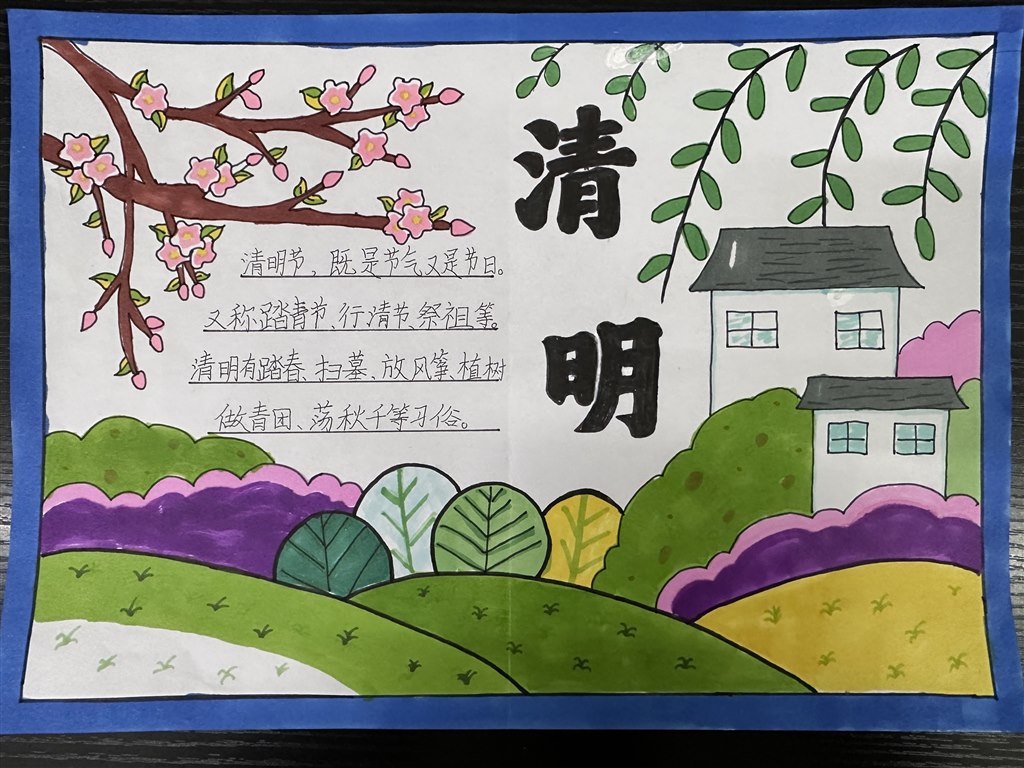 清明
清明节，既是节气又是节日。
又称踏青节、行清节、祭祖等。
清明有踏春、扫墓、放风筝、植树
做青团、荡秋千等习俗。